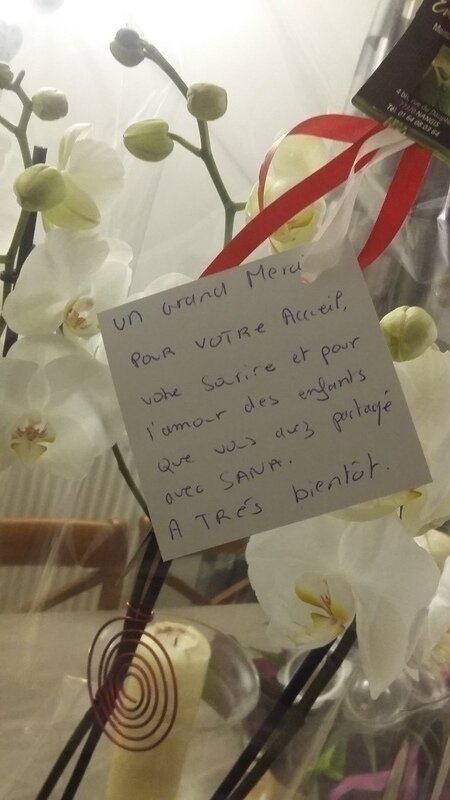 4 bis, rue du
77370 NANGIS
Tél. 01 64 08 03 84
UN Grand Merci
POUR VOTRE Accueil,
votre Sourire et pour
l'amour des enfants
que vous avez partagé
avec SANA.
A TRÉS bientôt.